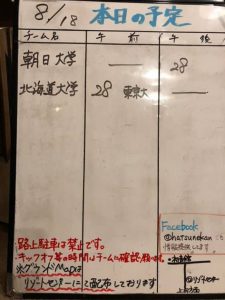 8/18 本日の予定
チーム名 午前 午後
朝日大学 — 28
北海道大学 28 東京大 —
Facebook
@hatsunekan
路上駐車は禁止です。
・キックオフ等の時間はチームに確認お願いします。
※グランドMAPは
リゾートセンターにて配布しております